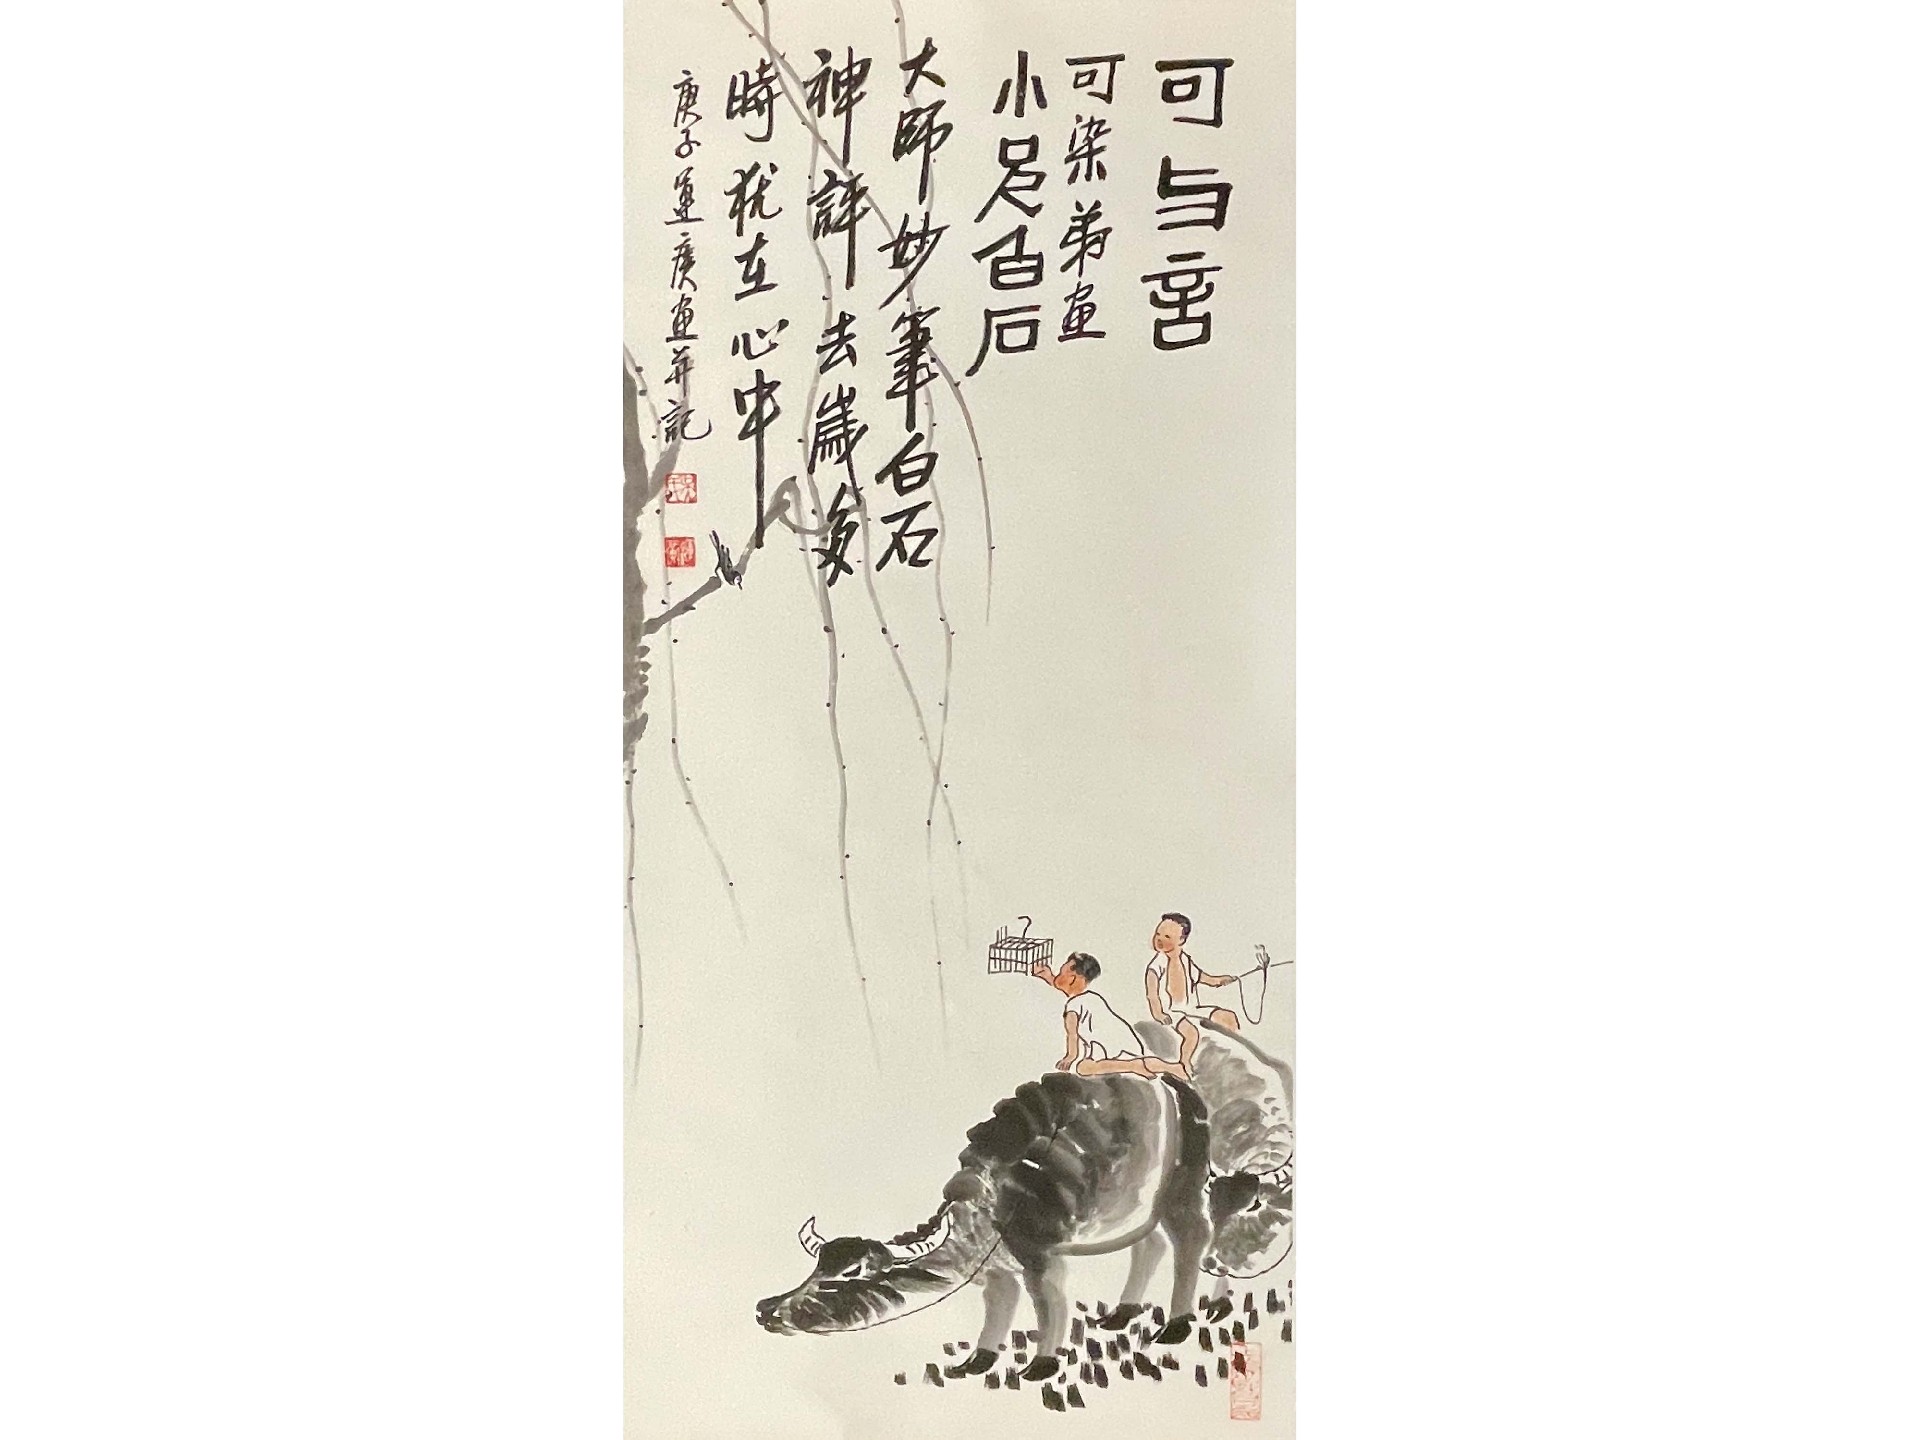 可与言
可染弟画
小兄白石
大師妙筆白石
神評去歲多
時猶在心中
庚子 画并記